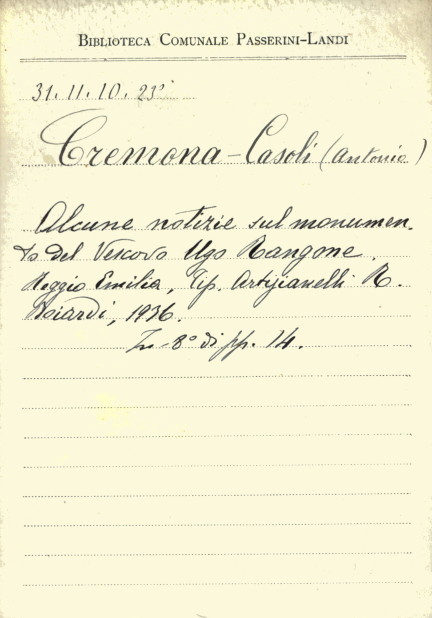 BIBLIOTECA COMUNALE PASSERINI-LANDI
31.11.10.23ⁱ
Cremona-Casoli (Antonio)
Alcune notizie sul monumen-
to del Vescovo Ugo Rangone.
Reggio Emilia, Tip. Artigianelli R.
Boiardi, 1936.
In-8° di pp. 14.